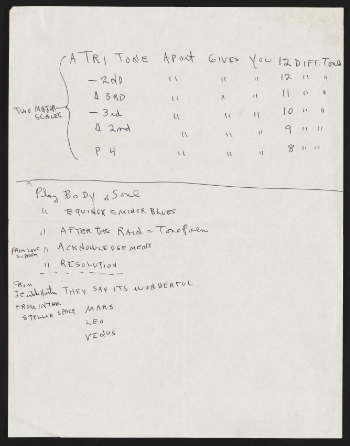 A TRI TONE APART GIVES YOU 12 DIFF. TONES
- 2nd " " " 12 " "
Δ 3RD " " " 11 " "
TWO MAJOR SCALES - 3rd " " " 10 " "
Δ 2nd " " " 9 " "
P 4 " " " 8 " "
Play BODY & Soul
" EQUINOX E MINOR BLUES
" AFTER THE RAID =
FROM LOVE SUPREME " ACKNOWLEDGEMENT
" RESOLUTION
FROM THEY SAY ITS WONDERFUL
FROM INTER STELLAR SPACE MARS
LEO
VENUS